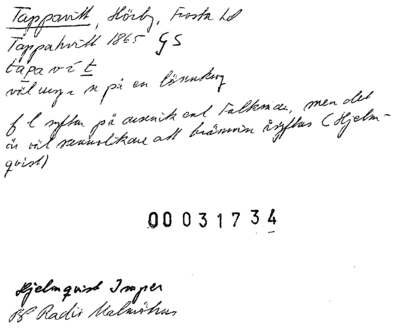 Tappavitt, Hörby, Frosta hd
Tappahvitt 1865 GS
tapavít
väl urspr. n på en lönnkrog
f l syftar på arsenik enl Falkman, men det
är väl sannolikare att brännvin åsyftas (Hjelm-
qvist)
00031734
Hjelmqvist Imper
Radio Malmöhus